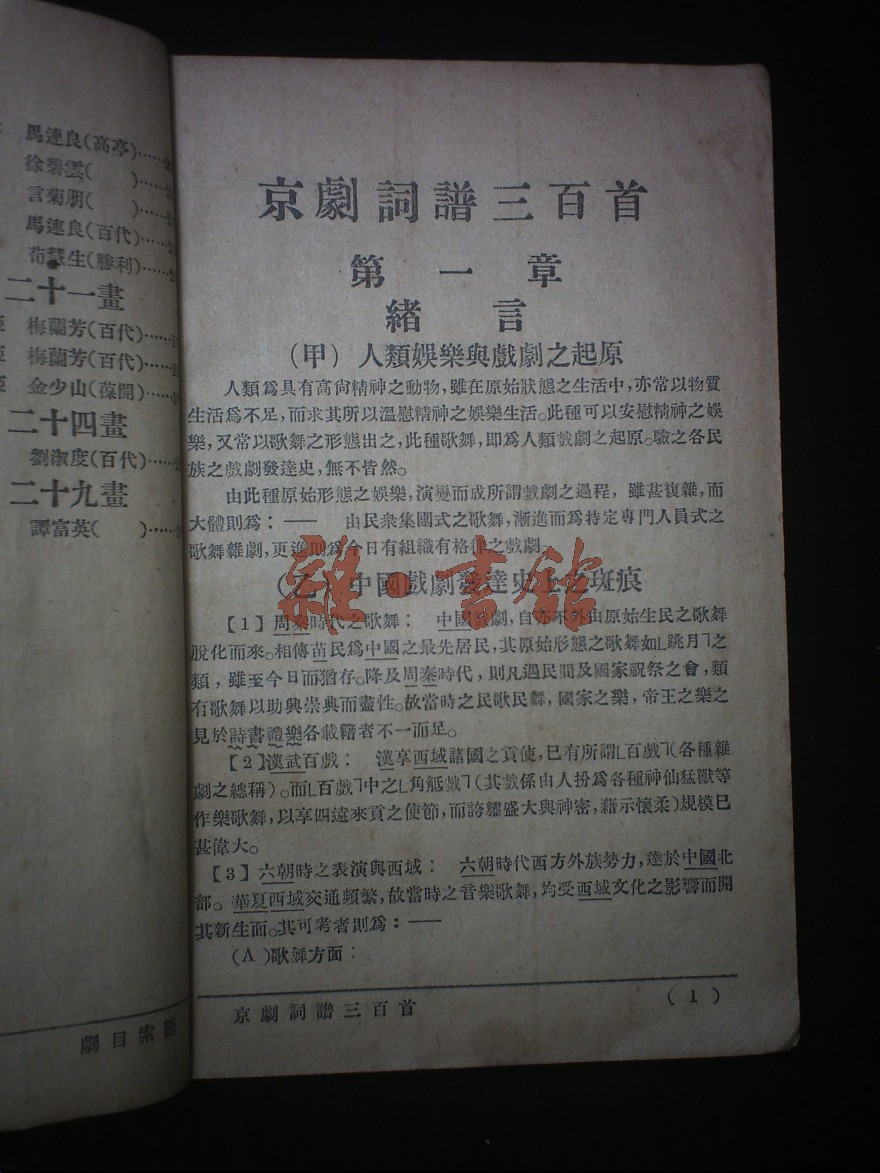 馬連良(高亭)……
徐碧雲(　　)……
言菊朋(　　)……
馬連良(百代)……
荀慧生(勝利)……
二十一畫
梅蘭芳(百代)……
梅蘭芳(百代)……
金少山(蓓開)……
二十四畫
劉淑度(百代)……
二十九畫
譚富英(　　)……
劇目索
京劇詞譜三百首
第一章
緒言
(甲) 人類娛樂與戲劇之起原
人類爲具有高尙精神之動物,雖在原始狀態之生活中,亦常以物質
生活爲不足,而求其所以溫慰精神之娛樂生活。此種可以安慰精神之娛
樂,又常以歌舞之形態出之,此種歌舞,卽爲人類戲劇之起原。驗之各民
族之戲劇發達史,無不皆然。
由此種原始形態之娛樂,演變而成所謂戲劇之過程,雖甚複雜,而
大體則爲:—— 由民衆集團式之歌舞,漸進而爲特定專門人員式之
歌舞雜劇,更進則爲今日有組織有格律之戲劇。
(乙) 中國戲劇發達史上之斑痕
【1】周秦時代之歌舞: 中國戲劇,自亦不外由原始生民之歌舞
脫化而來。相傳苗民爲中國之最先居民,其原始形態之歌舞如L跳月⅂之
類,雖至今日而猶存。降及周秦時代,則凡遇民間及國家祝祭之會,類
有歌舞以助興崇典而盡性。故當時之民歌民舞,國家之樂,帝王之樂之
見於詩書禮樂各載籍者不一而足。
【2】漢武百戲: 漢享西域諸國之貢使,已有所謂L百戲⅂(各種雜
劇之總稱)。而L百戲⅂中之L角觝戲⅂(其戲係由人扮爲各種神仙猛獸等
作樂歌舞,以享四遠來貢之使節,而誇耀盛大與神密,藉示懷柔)規模已
甚偉大。
【3】六朝時之表演與西域: 六朝時代西方外族勢力,達於中國北
部。華夏西域交通頻繁,故當時之音樂歌舞,均受西域文化之影響而開
其新生面。其可考者則爲:——
(A)歌舞方面:
京劇詞譜三百首
(1)
雜·書館